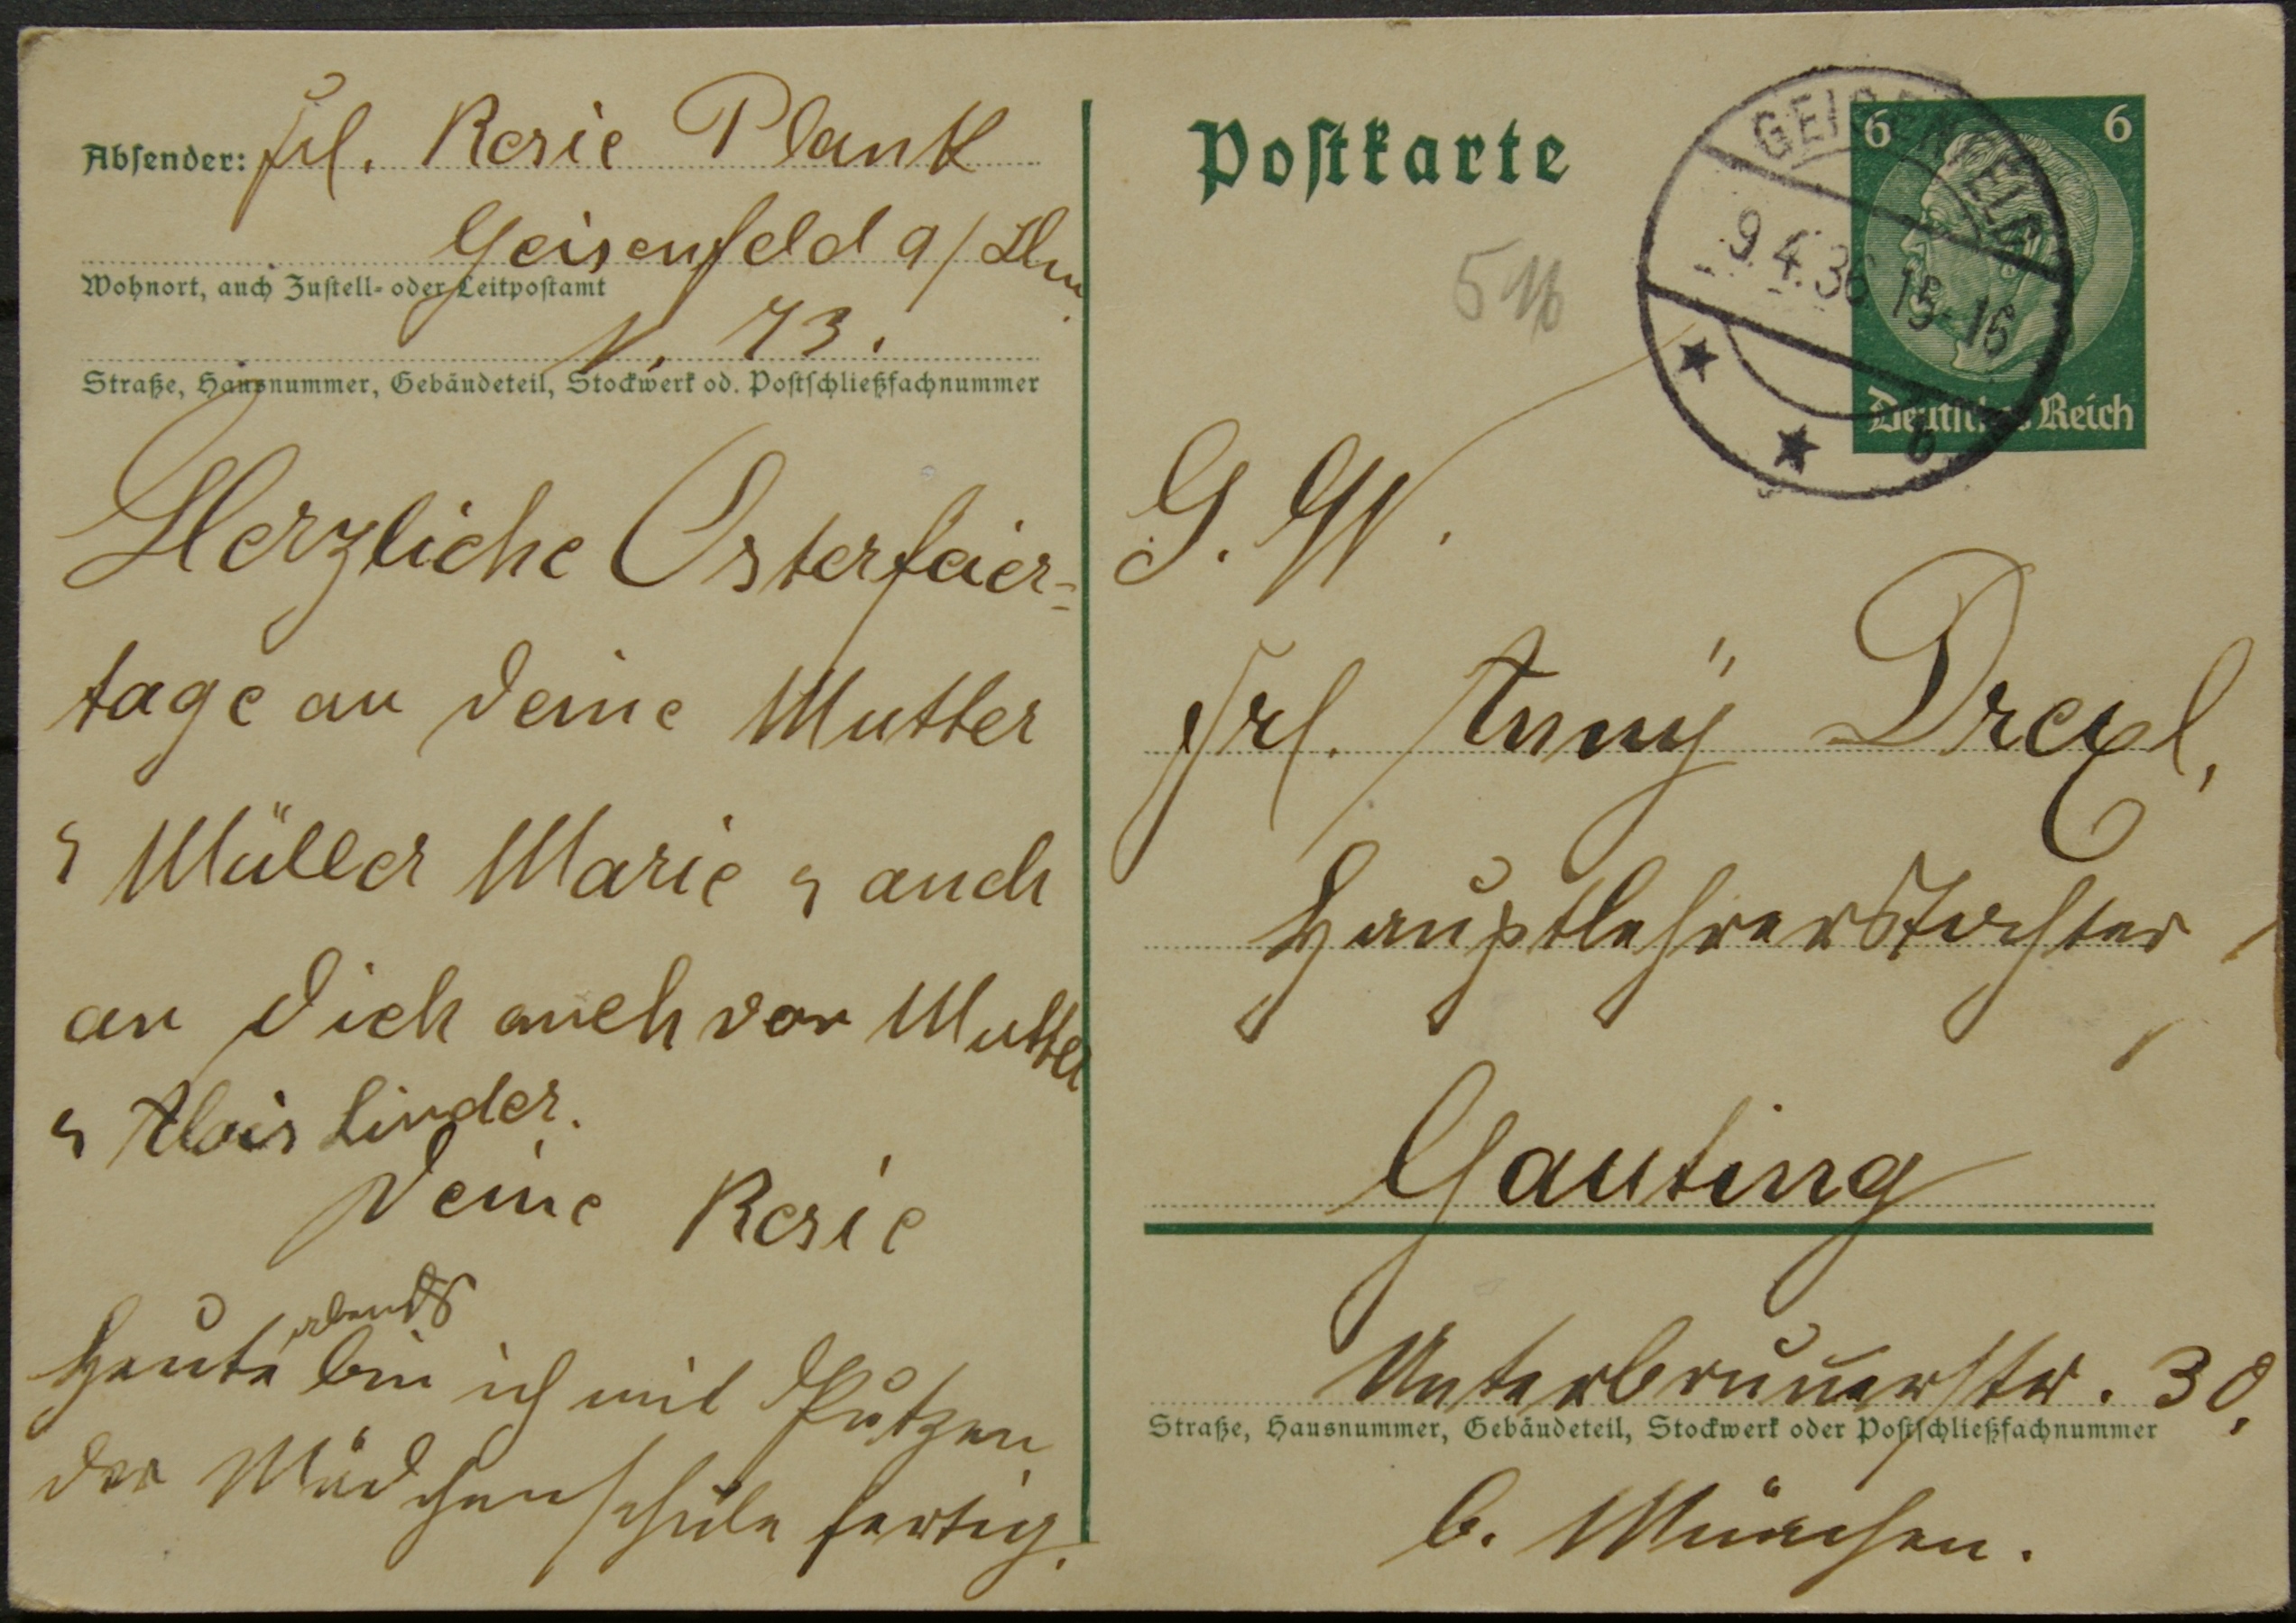 Absender: Frl. Resie Plank
Geisenfeld a/Ilm
Wohnort, auch Zustell- oder Leitpostamt
N. 73.
Straße, Hausnummer, Gebäudeteil, Stockwerk od. Postschließfachnummer
Herzliche Osterfeier-
tage an deine Mutter
u Müller Marie u auch
an dich auch von Mutter
u Alois Linder.
Deine Resie
abends
Heute bin ich mit Putzen
der Mädchenschule fertig.
Postkarte
516
GEISENFELD
9.4.36 15-16
b
6 6
Deutsches Reich
G. W.
Frl. Anny Drexl,
Hauptlehrerstochter,
Gauting
Unterbrunnerstr. 30.
Straße, Hausnummer, Gebäudeteil, Stockwerk oder Postschließfachnummer
b. München.